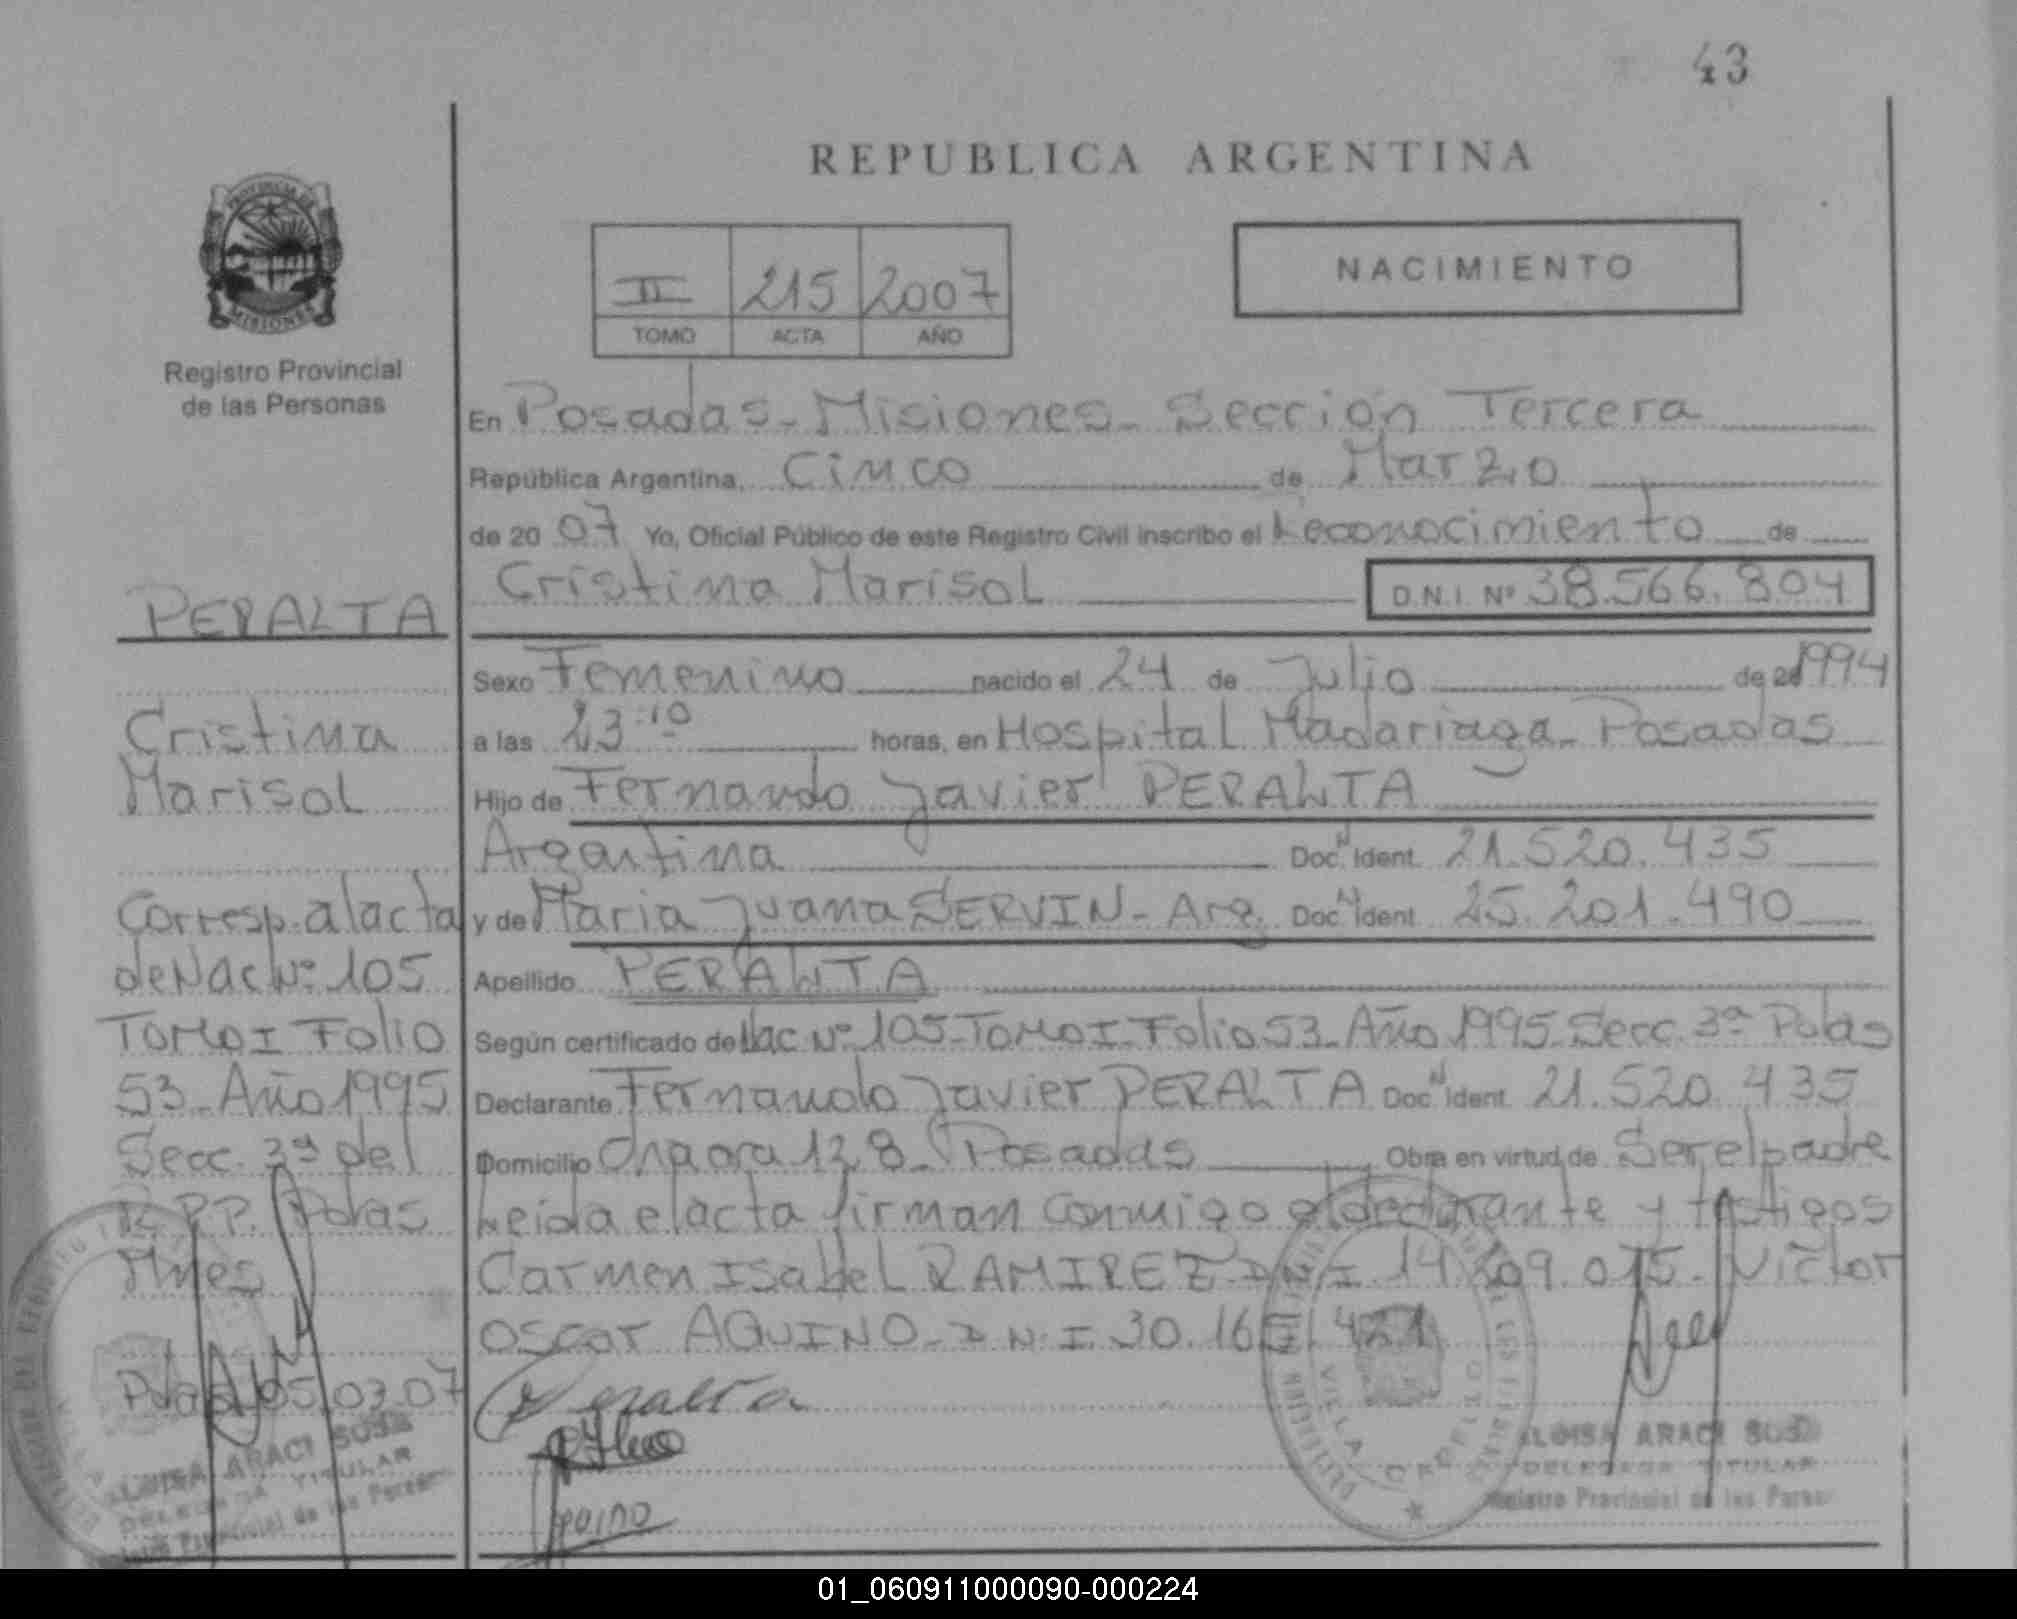 43
REPUBLICA ARGENTINA
PROVINCIA DE
MISIONES
Registro Provincial
de las Personas
II 215 2007
TOMO ACTA AÑO
NACIMIENTO
En Posadas - Misiones - Sección Tercera
República Argentina, Cinco de Marzo
de 20 07 Yo, Oficial Público de este Registro Civil inscribo el Reconocimiento de
Cristina Marisol D.N.I. Nº 38.566.804
PERALTA
Sexo Femenino nacido el 24 de Julio de 1994
a las 23:10 horas, en Hospital Madariaga - Posadas
Hijo de Fernando Javier PERALTA
Argentina Doc. Ident. 21.520.435
y de Maria Juana SERVIN - Arg. Doc. Ident. 25.201.490
Apellido PERALTA
Según certificado de Nac Nº 105 - Tomo I - Folio 53 - Año 1995 - Secc. 3ª Pdas
Declarante Fernando Javier PERALTA Doc. Ident. 21.520.435
Domicilio Chacra 128 - Posadas Obra en virtud de Ser el padre
Leida el acta firman conmigo el declarante y testigos
Carmen Isabel RAMIREZ - D.N.I. 14.209.075 - Victor
Oscar AQUINO - D.N.I. 30.16 421
Cristina
Marisol
Corresp. al acta
de Nac Nº 105
Tomo I Folio
53 - Año 1995
Secc. 3ª del
R.P.P. Pdas
Mnes
Pdas 05.03.07
Peralta
ALOISA ARACI SOSA
DELEGADA TITULAR
Registro Provincial de las Personas
VILLA
ALOISA ARACI SOSA
DELEGADA TITULAR
Registro Provincial de las Personas
01_060911000090-000224